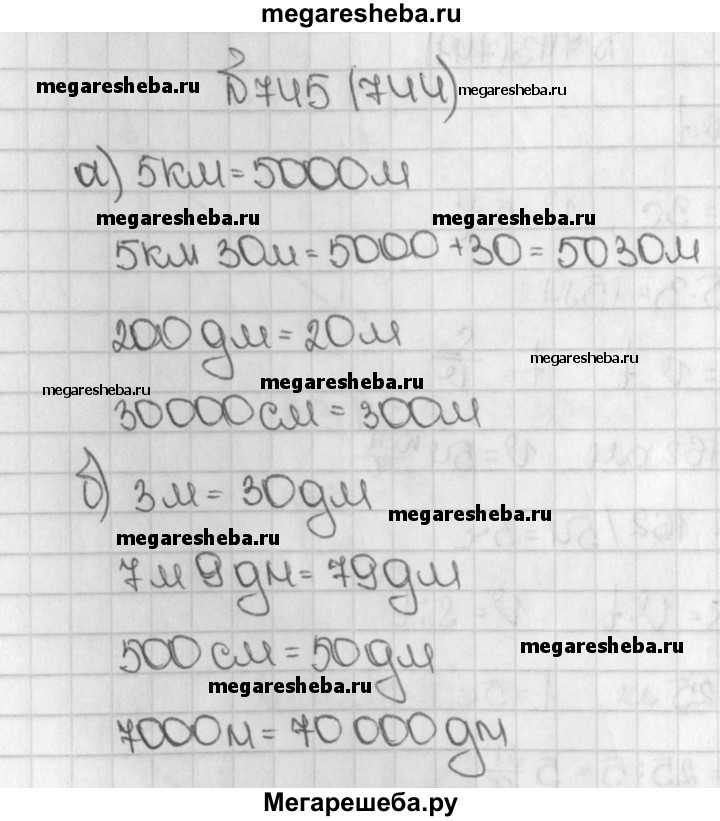 megaresheba.ru
megaresheba.ru №745 (744) megaresheba.ru
а) 5км = 5000м
megaresheba.ru megaresheba.ru
5км 30м = 5000 + 30 = 5030м
200дм = 20м
megaresheba.ru
megaresheba.ru megaresheba.ru
30000см = 300м
б) 3м = 30дм
megaresheba.ru
megaresheba.ru
7м 9дм = 79дм
500см = 50дм
megaresheba.ru
megaresheba.ru
7000м = 70 000дм
Мегарешеба.ру